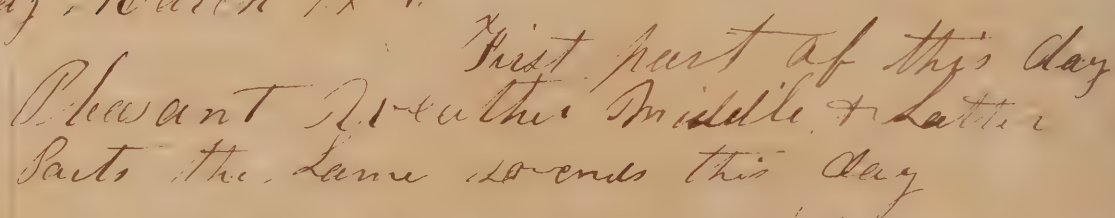 First part of this day
Pleasant Weather Middle & Latter
Parts the Same so ends this day